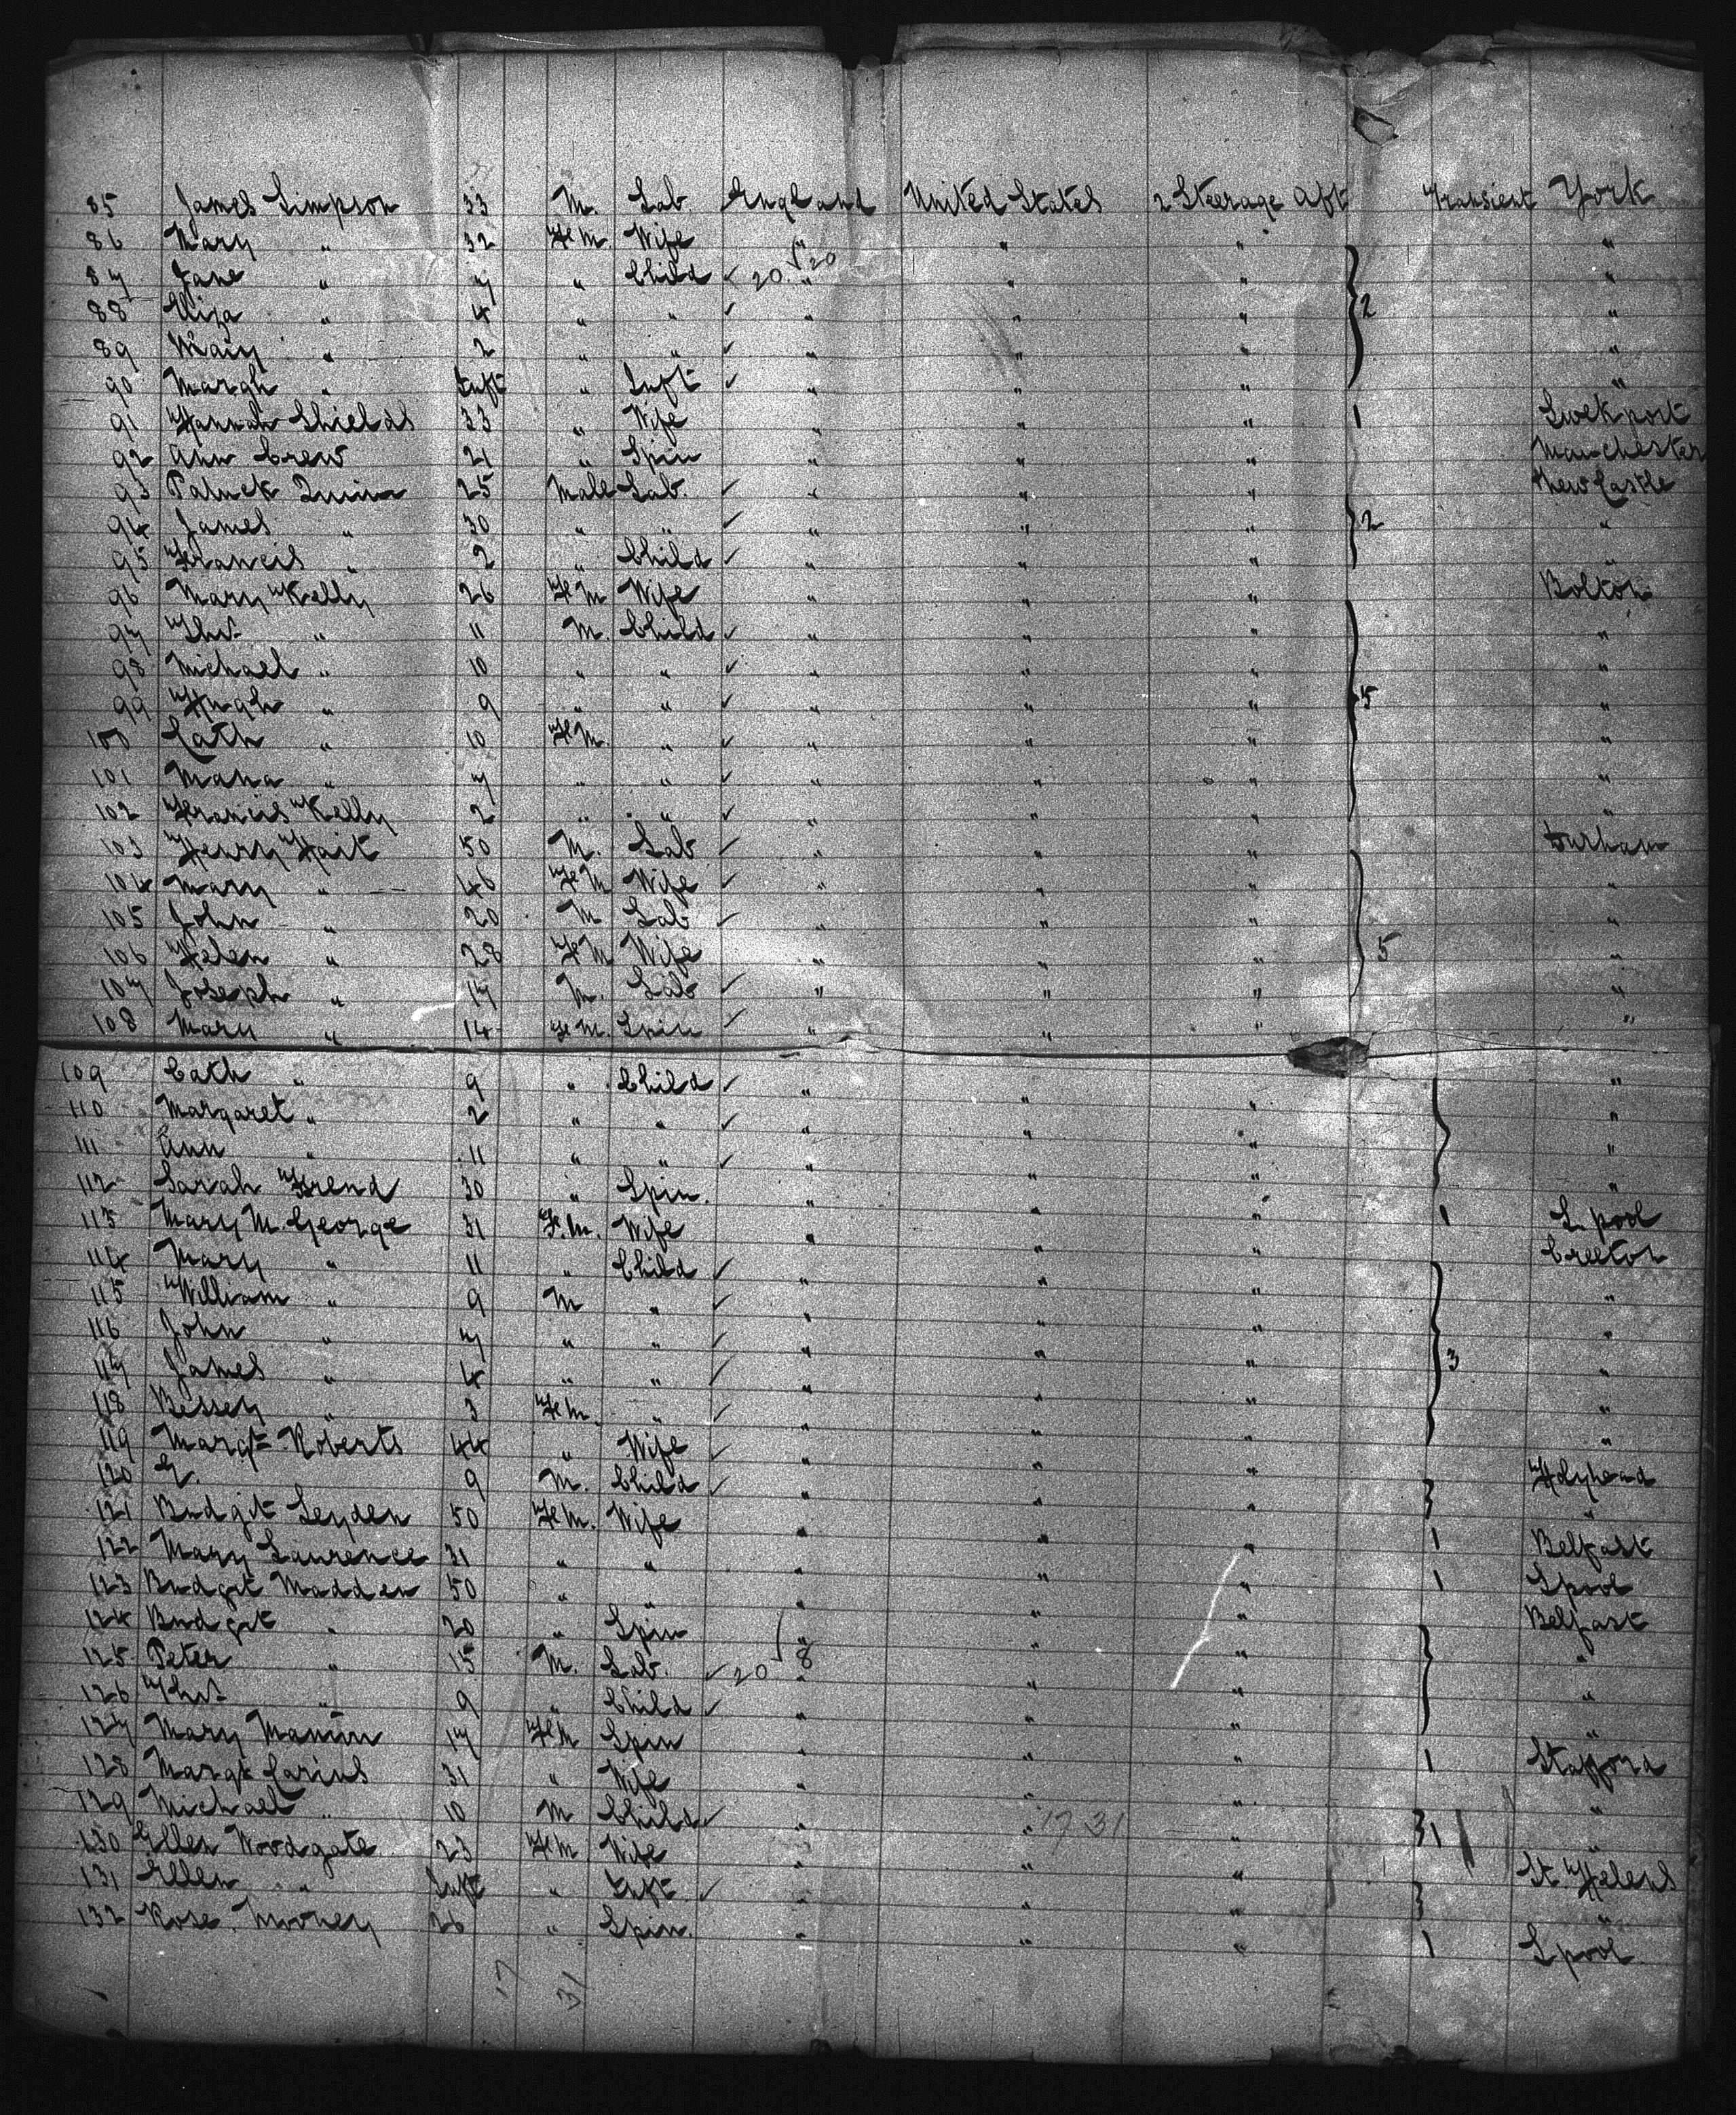 85 James Simpson 33 M. Lab. England United States 2 Steerage Aft Transient York
86 Mary " 32 Fe M Wife " " " "
87 Jane " 7 " Child ✓ 20 √20 " " " "
88 Eliza " 4 " " ✓ " " " } 2 "
89 Mary " 2 " " ✓ " " " "
90 Margh " Inft " Inft ✓ " " " "
91 Hannah Shields 33 " Wife " " " 1 Stockport
92 Ann Crew 21 " Spin " " " Manchester
93 Patrick Quinn 25 Male Lab. ✓ " " " New Castle
94 James " 30 " " ✓ " " " } 2 "
95 Francis " 2 " Child ✓ " " " "
96 Mary Kelly 26 Fe M Wife " " " Bolton
97 Thos " 11 M. Child ✓ " " " "
98 Michael " 10 " " ✓ " " " "
99 Hugh " 9 " " ✓ " " " } 5 "
100 Cath " 10 Fe M. " ✓ " " " "
101 Maria " 7 " " ✓ " " " "
102 Francis Kelly 2 " " ✓ " " " "
103 Henry Hait 50 M. Lab ✓ " " " Durham
104 Mary " 46 Fe M Wife ✓ " " " "
105 John " 20 M Lab ✓ " " " "
106 Helen " 28 Fe M Wife " " " } 5 "
107 Joseph " 17 M. Lab ✓ " " " "
108 Mary " 14 Fe M. Spin ✓ " " " "
109 Cath " 9 " Child ✓ " " " "
110 Margaret " 2 " " ✓ " " " "
111 Ann " 11 " " ✓ " " " "
112 Sarah Frend 30 " Spin. " " " 1 L. pool
113 Mary M. George 31 F.M. Wife " " "
114 Mary " 11 " Child ✓ " " " "
115 William " 9 M " ✓ " " " "
116 John " 7 " " ✓ " " " } 3 "
117 James " 4 " " ✓ " " " "
118 Bessey " 3 Fe M. " ✓ " " " "
119 Margt Roberts 44 " Wife ✓ " " " Holyhead
120 9 M. Child ✓ " " " } "
121 Bridgit Leyden 50 Fe M. Wife " " " 1 Belfast
122 Mary Laurence 31 " " " " " 1 Lpool
123 Bridgit Madden 50 " " " " " Belfast
124 Bridgit " 20 " Spin " " " "
125 Peter " 15 M. Lab. ✓ 20 8 " " " } "
126 Thos " 9 " Child ✓ " " " "
127 Mary 17 Fe M Spin " " " 1 Stafford
128 Margt 31 " Wife " " " "
129 Michael " 10 M Child ✓ " " 17 31 " } 1 "
130 Ellen Woodgate 23 Fe M Wife " " " St. Helens
131 Ellen " Inft " Inft. ✓ " " " } "
132 Rose Mooney 26 " Spin. " " " 1 L pool
17 31